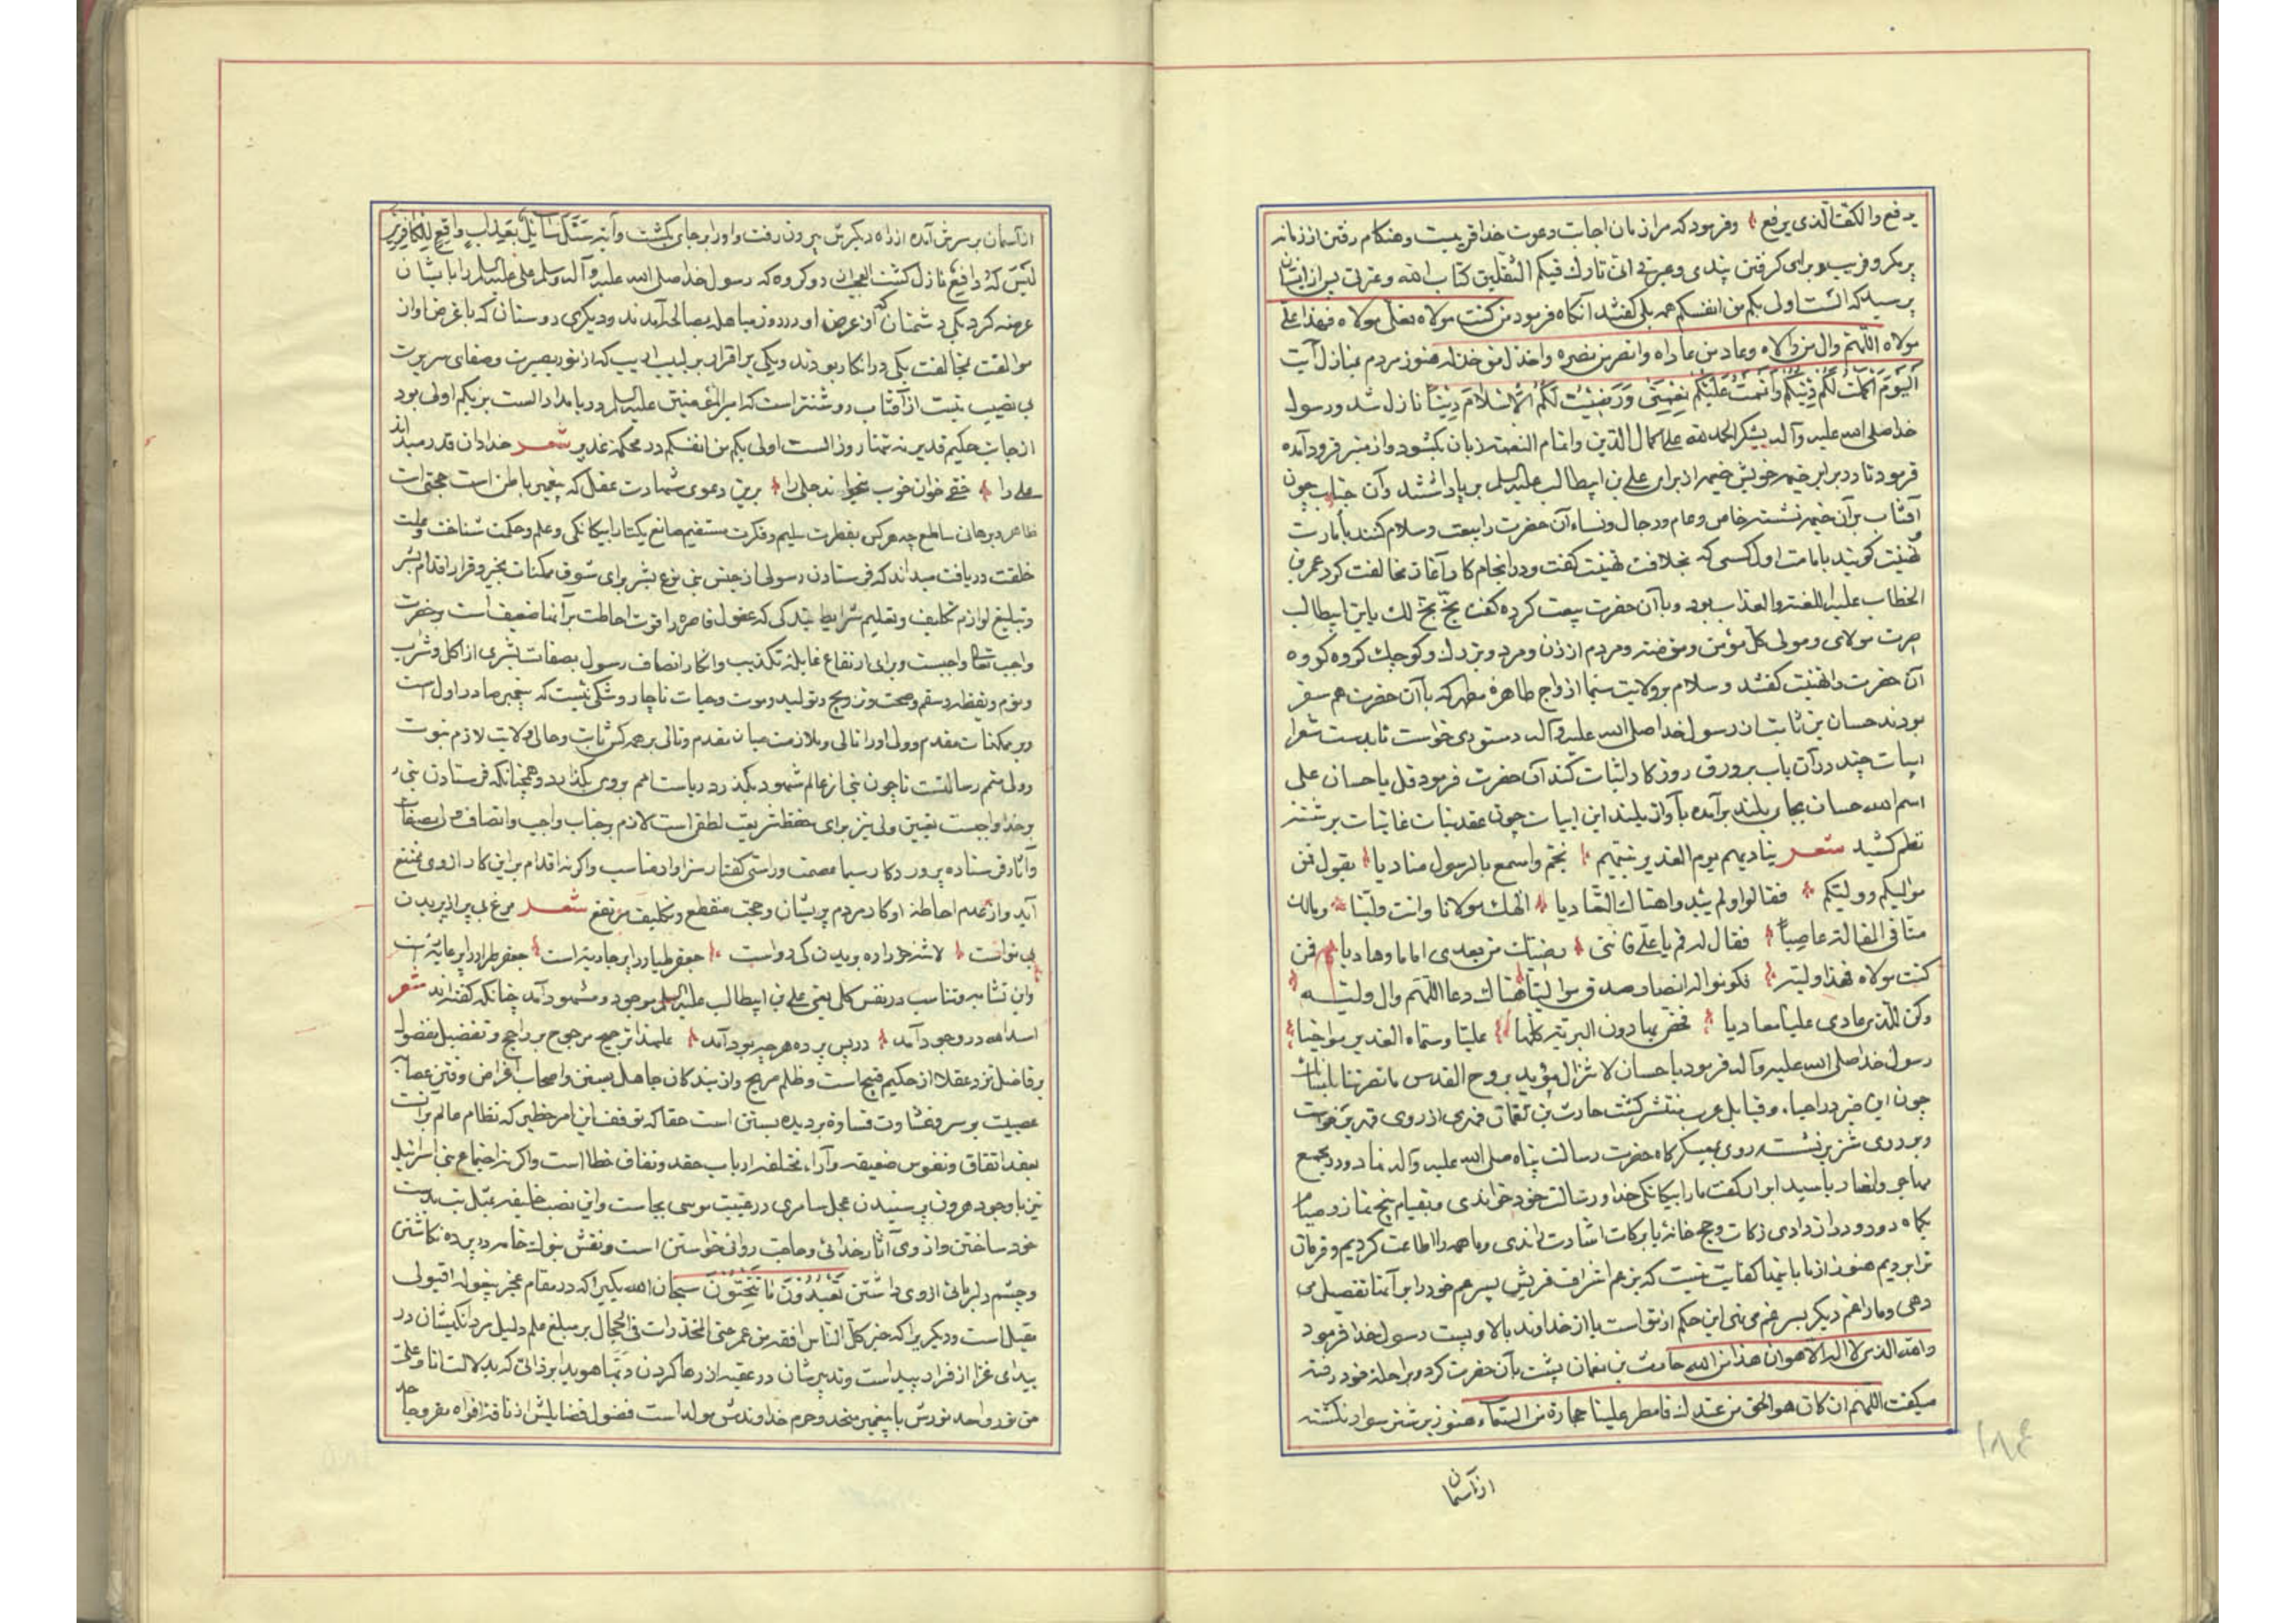 یدفع والکف الذی یرفع وفرمود که مرا زمان اجابت دعوت خدا قریبست وهنکام رفتن از زمانه
پر مکر وفریب وبرای کرفتن پندی وعبرتی انی تارك فیکم الثقلین کتاب الله وعترتی پس از ایشان
پرسید که الست اولی بکم من انفسکم همه بلی کفتند آنکاه فرمود من کنت مولاه فعلی مولاه فهذا علی
مولاه اللهم وال من والاه وعاد من عاداه وانصر من نصره واخذل من خذله هنوز مردم بمنازل آیت
الیَوْمَ اَکْمَلْتُ لَکُمْ دِینَکُمْ وَاَتْمَمْتُ عَلَیْکُمْ نِعْمَتی وَرَضِیتُ لَکُمُ الْاِسْلامَ دِیناً نازل شد ورسول
خدا صلی الله علیه وآله بشکر الحمد لله علی کمال الدین واتمام النعمة زبان بکشود واز منبر فرود آمده
فرمود تا در برابر خیمه خویش خیمه از برای علی بن ابیطالب علیه السلام بر پا داشتند وآن جناب چون
آفتاب بر آن خیمه نشسته خاص وعام ورجال ونساء آن حضرت را بیعت وسلام کنند بامارت
تهنیت کویند بامامت اول کسی که بخلافت تهنیت کفت ودر انجام کار آغاز مخالفت کرد عمر بن
الخطاب علیه اللعنة والعذاب بود وبا آن حضرت بیعت کرده کفت بخّ بخّ لك یابن ابیطالب
صرت مولای ومولی کل مؤمن ومؤمنة ومردم از زن ومرد وبزرك وکوچك کروه کروه
آن حضرت را تهنیت کفتند وسلام بر ولایت سیما ازواج طاهره مطهره که با آن حضرت هم سفر
بودند حسان بن ثابت از رسول خدا صلی الله علیه وآله دستوری خواست تا بدست شعرا
ابیات چند در آن باب بر ورق روزکار اثبات کند آن حضرت فرمود قل یا حسان علی
اسم الله حسان بجای بلند برآمده بآواز بلند این ابیات چون عقد بنات غانیات برشته
نظم کشید شعر ینادیهم یوم الغدیر نبیّهم بخمّ واسمع بالرسول منادیا یقول فمن
مولیکم وولیّکم فقالوا ولم یبدوا هناك التعادیا الهك مولانا وانت ولیّنا ومالك
منّا فی المقالة عاصِیاً فقال له قم یا علی فانّنی رضیتك من بعدی اماما وهادیا فمن
کنت مولاه فهذا ولیّه فکونوا له انصار صدق موالیاً هناك دعا اللّهمّ وال ولیّه
وکن للّذی عادی علیاً معادیا فخصّ بها دون البریّة کلّها علیّا وسمّاه الغدیر مواخیا
رسول خدا صلی الله علیه وآله فرمود یا حسان لا تزال مؤید بروح القدس ما نصرتنا بلسانك
چون این خبر در احیاء وقبایل عرب منتشر کشت حارث بن نعمان فهری از روی
وبر روی شتر نشسته روی بمعسکرگاه حضرت رسالت پناه صلی الله علیه وآله نهاد ودر مجمع
مهاجر وانصار با سید ابرار کفت ما را بیکانکی خدا ورسالت خود خواندی وبقیام پنج نماز وصیام
یکماه ودر وادی زکات وحج خانه با برکات اشارت راندی وما همه را اطاعت کردیم وفرمان
ترا بردیم هنوز از ما باینها کفایت نیست که بزعم اشراف قریش پسر عم خود را بر آنها تفضیل می
دهی وما را عم دیکر پسر عم می نهی این حکم از تو است یا از خداوند بالا وپست رسول خدا فرمود
والله الذی لا اله الا هو ان هذا من الله حارث بن نعمان پشت بآن حضرت کرد وبراحله خود رفته
میکفت اللهم ان کان هو الحق من عندك فامطر علینا حجارة من السماء هنوز بر شتر سوار نکشته
از آسمان
۱۸۴
از آسمان بر سرش آمده از راه دیکرش بیرون رفت واو را بر جای بکشت وآیه سَئَلَ سٰائِلٌ بِعَذٰابٍ وٰاقِعٍ لِلْکٰافِرینَ
لَیْسَ لَهُ دافِعٌ نازل کشت العجب از دو کروه که رسول خدا صلی الله علیه وآله وسلم علی علیه السلام را بایشان
عرضه کرد یکی دشمنان که از عرض او در روز مباهله بمصالحه آمدند ودیکری دوستان که با عرض او از
موالفت بمخالفت یکی در انکار بودند ویکی بر اقرار بر لبیب ادیب که از نور بصیرت وصفای سریرت
بی نصیب نیست از آفتاب روشنتر است که امیر المؤمنین علیه السلام در بامداد الست بربکم اولی بود
از جانب حکیم قدیر نه تنها روز الست اولی بکم من انفسکم در محکمه غدیر شعر خدا دان قدر میداند
علی را خفی خوان خوب میخواند جلی را برین دعوی شهادت عقل که پیغمبر باطن است حجتی است
ظاهر وبرهان ساطع چه هر کس بفطرت سلیم وفکرت مستقیم صانع یکتا را بیکانکی وعلم وحکمت شناخت وعلت
خلقت دریافت میداند که فرستادن رسولی از جنس بنی نوع بشر برای سوق ممکنات بخیر وقرار اقدام بشر
وتبلیغ لوازم تکلیف وتعلیم شرایط بندکی که عقول قاصره را قوت احاطت بر آنها ضعیف است بر حضرت
واجب تعالی واجبست وبرای ارتفاع غایله تکذیب وانکار اتصاف رسول بصفات بشری از اکل وشرب
ونوم ویقظه وسقم وصحت وتزویج وتولید وموت وحیات ناچار وشکی نیست که پیغمبر صادر اول است
وبر ممکنات مقدم وولی او را تالی وبلازمت میان مقدم وتالی بر هر کس ثابت وحالی ولایت لازم نبوت
وولی متمم رسالتست تا چون نبی از عالم شهود بکذرد ریاست امم بر وی بکذارد وهمچنانکه فرستادن نبی
بر خدا واجبست تعیین ولی نیز برای حفظ شریعت لطفی است لازم بر جناب واجب واتصاف ولی بصفات
وآثار فرستاده پروردکار سیما عصمت وراستی کفتار سزاوار مناسب واکر نه اقدام بر این کار از وی ممتنع
آید واز عدم احاطه او کار مردم پریشان وحجت منقطع وتکلیف مرتفع شعر مرغ بی پر از پریدن
بی نواست لاشه خر را ره بریدن کی رواست جعفر طیار را پر جاریه است جعفر طرار را پر عاریه است
واین تشابه وتناسب در نفس کلی یعنی علی بن ابیطالب علیه السلام موجود ومشهود آمد چنانکه کفته اند شعر
اسد الله در وجود آمد در پس پرده هر چه بود آمد علیهذا ترجیح مرجوح بر راجح وتفضیل مفضول
بر فاضل نزد عقلا از حکیم قبیح است وظلم صریح واز بندکان جاهل بسنن واصحاب اغراض وفتن عصابه
عصبیت بر سر وغشاوت قساوة بر دیده بستن است حقا که توقف این امر خطیر که نظام عالم بر آنست
بعقد اتفاق ونفوس ضعیفه وآراء مختلفه ارباب حقد ونفاق خطا است واکر نه اجتماع بنی اسرائیل
نیز با وجود هرون پرستیدن عجل سامری در غیبت موسی بجاست واین نصب خلیفه بمثل بت بدست
خود ساختن واز وی آثار خدائی وحاجت روائی خواستن است ونقش بتول خامه در پرده نکاشتن
وچشم دلربائی از وی داشتن تَعْبُدُونَ مٰا تَنْحِتُونَ سبحان الله یکیرا که در مقام عجز بقوله اقیلونی
مقیل است ودیکریرا که خبر کل الناس افقه من عمر حتی المخدرات فی الحجال بر مبلغ علم دلیل مردانکیشان در
بیدای غزا از فرار پیداست وتدبیرشان در عقبه از رها کردن دبّها هویدا بر ذاتی که بدلالت انا وعلی
من نور واحد نورش با پیغمبر متحد وحرم خداوندش مولد است فضول فضایلش از ناقة افواه مقروحا